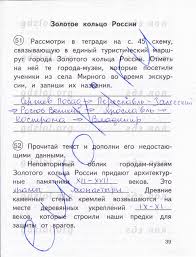 Золотое кольцо России
51 Рассмотри в тетради на с. 45 схему,
связывающую в единый туристический марш-
рут города Золотого кольца России. Отметь
на ней те города-музеи, которые посетили
ученики из села Мирного во время экскур-
сии, и запиши их названия.
Сергиев Посад → Переславль-Залесский
→ Ростов Великий → Ярославль →
Кострома → Владимир
52 Прочитай текст и дополни его недостаю-
щими данными.
Неповторимый облик городам-музеям
Золотого кольца России придают архитектур-
ные памятники XII - XVII веков. Это
храмы, монастыри. Древние
каменные стены кремлей возвышаются на
месте деревянных укреплений IX-XI
веков, которые строили наши предки для
защиты от врагов.
39